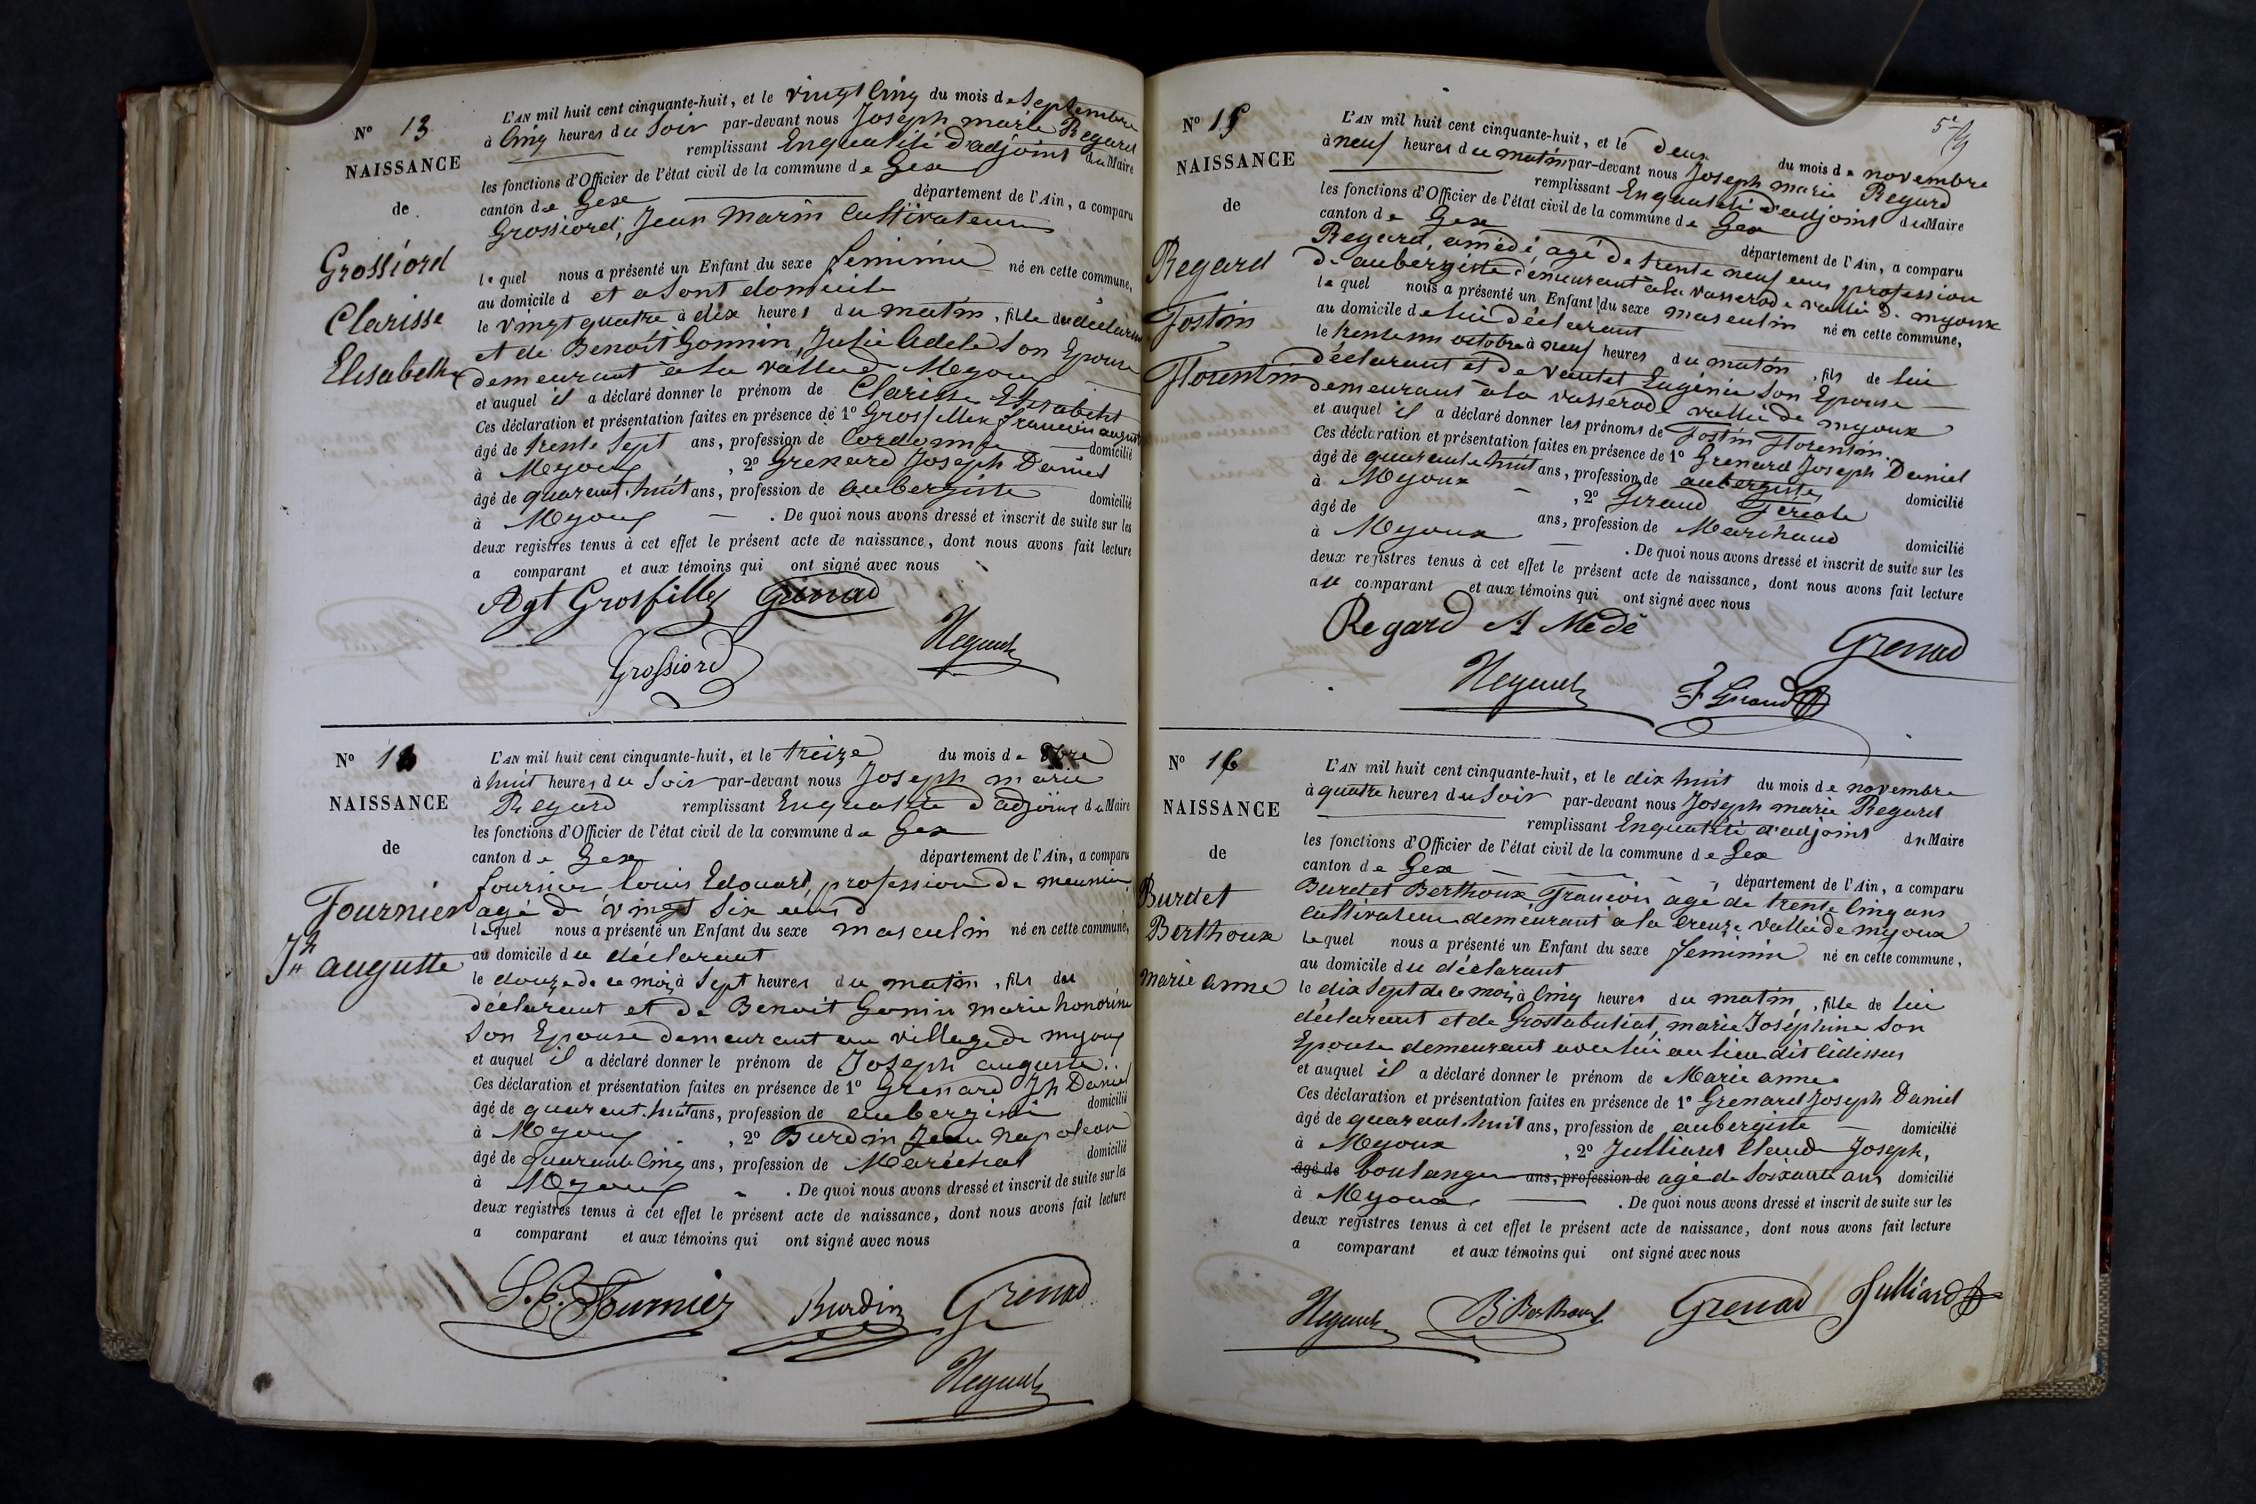 N° 13
NAISSANCE
de
Grossiord
Clarisse
Elisabeth
L'AN mil huit cent cinquante-huit, et le vingt Cinq du mois de Septembre
à Cinq heures du Soir par-devant nous Joseph marie Regard
remplissant Enqualité d'adjoint du Maire
les fonctions d'Officier de l'état civil de la commune de Gex
canton de Gex département de l'Ain, a comparu
Grossiord, Jean Marin Cultivateur
lequel nous a présenté un Enfant du sexe feminin né en cette commune,
au domicile d et a Sont domicile
le vingt quatre à dix heures du matin, fille du déclarant
et de Benoît Gonnin, Julie Adele Son Epouse
demeurant à la vallée Mijoux
et auquel il a déclaré donner le prénom de Clarisse Elisabeth
Ces déclaration et présentation faites en présence de 1° Grosfillex francois august
âgé de trente Sept ans, profession de Cordonnier domicilié
à Meyoux, 2° Grenard Joseph Daniel
âgé de quarant.huit ans, profession de aubergiste domicilié
à Meyoux. De quoi nous avons dressé et inscrit de suite sur les
deux registres tenus à cet effet le présent acte de naissance, dont nous avons fait lecture
a comparant et aux témoins qui ont signé avec nous
Agt Grosfillex Grenard
Grossiord Regard
N° 14
NAISSANCE
de
Fournier
Jh auguste
L'AN mil huit cent cinquante-huit, et le treize du mois de
à huit heures du Soir par-devant nous Joseph marie
Regard remplissant Enqualité d'adjoint du Maire
les fonctions d'Officier de l'état civil de la commune de Gex
canton de Gex département de l'Ain, a comparu
fournier louis Edouard, profession de meunier
agé de vingt Six ans
lequel nous a présenté un Enfant du sexe masculin né en cette commune,
au domicile du déclarant
le douze de ce mois à Sept heures du matin, fils du
déclarant et de Benoit Gonin marie honorine
Son Epouse demeurant au village de myoux
et auquel il a déclaré donner le prénom de Joseph auguste..
Ces déclaration et présentation faites en présence de 1° Grenard Jh Daniel
âgé de quarant.huit ans, profession de aubergiste domicilié
à Meyoux, 2° Burdin Jean Napoléon
âgé de quarante Cinq ans, profession de Maréchal domicilié
à Meyoux. De quoi nous avons dressé et inscrit de suite sur les
deux registres tenus à cet effet le présent acte de naissance, dont nous avons fait lecture
a comparant et aux témoins qui ont signé avec nous
L. E. Fournier Burdin Grenard
Regard
N° 15
NAISSANCE
de
Regard
Jostin
Florentin
L'AN mil huit cent cinquante-huit, et le deux du mois de novembre
à neuf heures du matin par-devant nous Joseph marie Regard
remplissant Enqualité d'adjoint du Maire
les fonctions d'Officier de l'état civil de la commune de Gex
canton de Gex département de l'Ain, a comparu
Regard, amédé, agé de trente neuf ans profession
de aubergiste demeurant à la vasserode vallée de myoux
lequel nous a présenté un Enfant du sexe masculin né en cette commune,
au domicile de lui déclarant
le trente un octobre à neuf heures du matin, fils de lui
déclarant et de Eugénie Son Epouse
demeurant à la vasserode vallée de myoux
et auquel il a déclaré donner les prénoms de Jostin florentin.
Ces déclaration et présentation faites en présence de 1° Grenard Joseph Daniel
âgé de quarante huit ans, profession de aubergiste domicilié
à Meyoux, 2° Giraud
âgé de ans, profession de Marchand domicilié
à Meyoux. De quoi nous avons dressé et inscrit de suite sur les
deux registres tenus à cet effet le présent acte de naissance, dont nous avons fait lecture
au comparant et aux témoins qui ont signé avec nous
Regard A Médé Grenard
Regard F Giraud
N° 16
NAISSANCE
de
Burdet
Berthoux
marie anne
L'AN mil huit cent cinquante-huit, et le dix huit du mois de novembre
à quatre heures du Soir par-devant nous Joseph marie Regard
remplissant Enqualité d'adjoint du Maire
les fonctions d'Officier de l'état civil de la commune de Gex
canton de Gex, département de l'Ain, a comparu
Burdet Berthoux François agé de trente Cinq ans
Cultivateur demeurant a la Creuze vallée de myoux
Lequel nous a présenté un Enfant du sexe feminin né en cette commune,
au domicile du déclarant
le dix Sept de ce mois, à Cinq heures du matin, fille de lui
déclarant et de Grostabutiat, marie Joséphine Son
Epouse demeurant avec lui au lieu dit
et auquel il a déclaré donner le prénom de Marie anne
Ces déclaration et présentation faites en présence de 1° Grenard Joseph Daniel
âgé de quarant.huit ans, profession de aubergiste domicilié
à Meyoux, 2° Julliard Claude Joseph,
âgé de boulanger ans, profession de agé de Soixante ans domicilié
à Meyoux. De quoi nous avons dressé et inscrit de suite sur les
deux registres tenus à cet effet le présent acte de naissance, dont nous avons fait lecture
a comparant et aux témoins qui ont signé avec nous
Regard B Berthoux Grenard Julliard